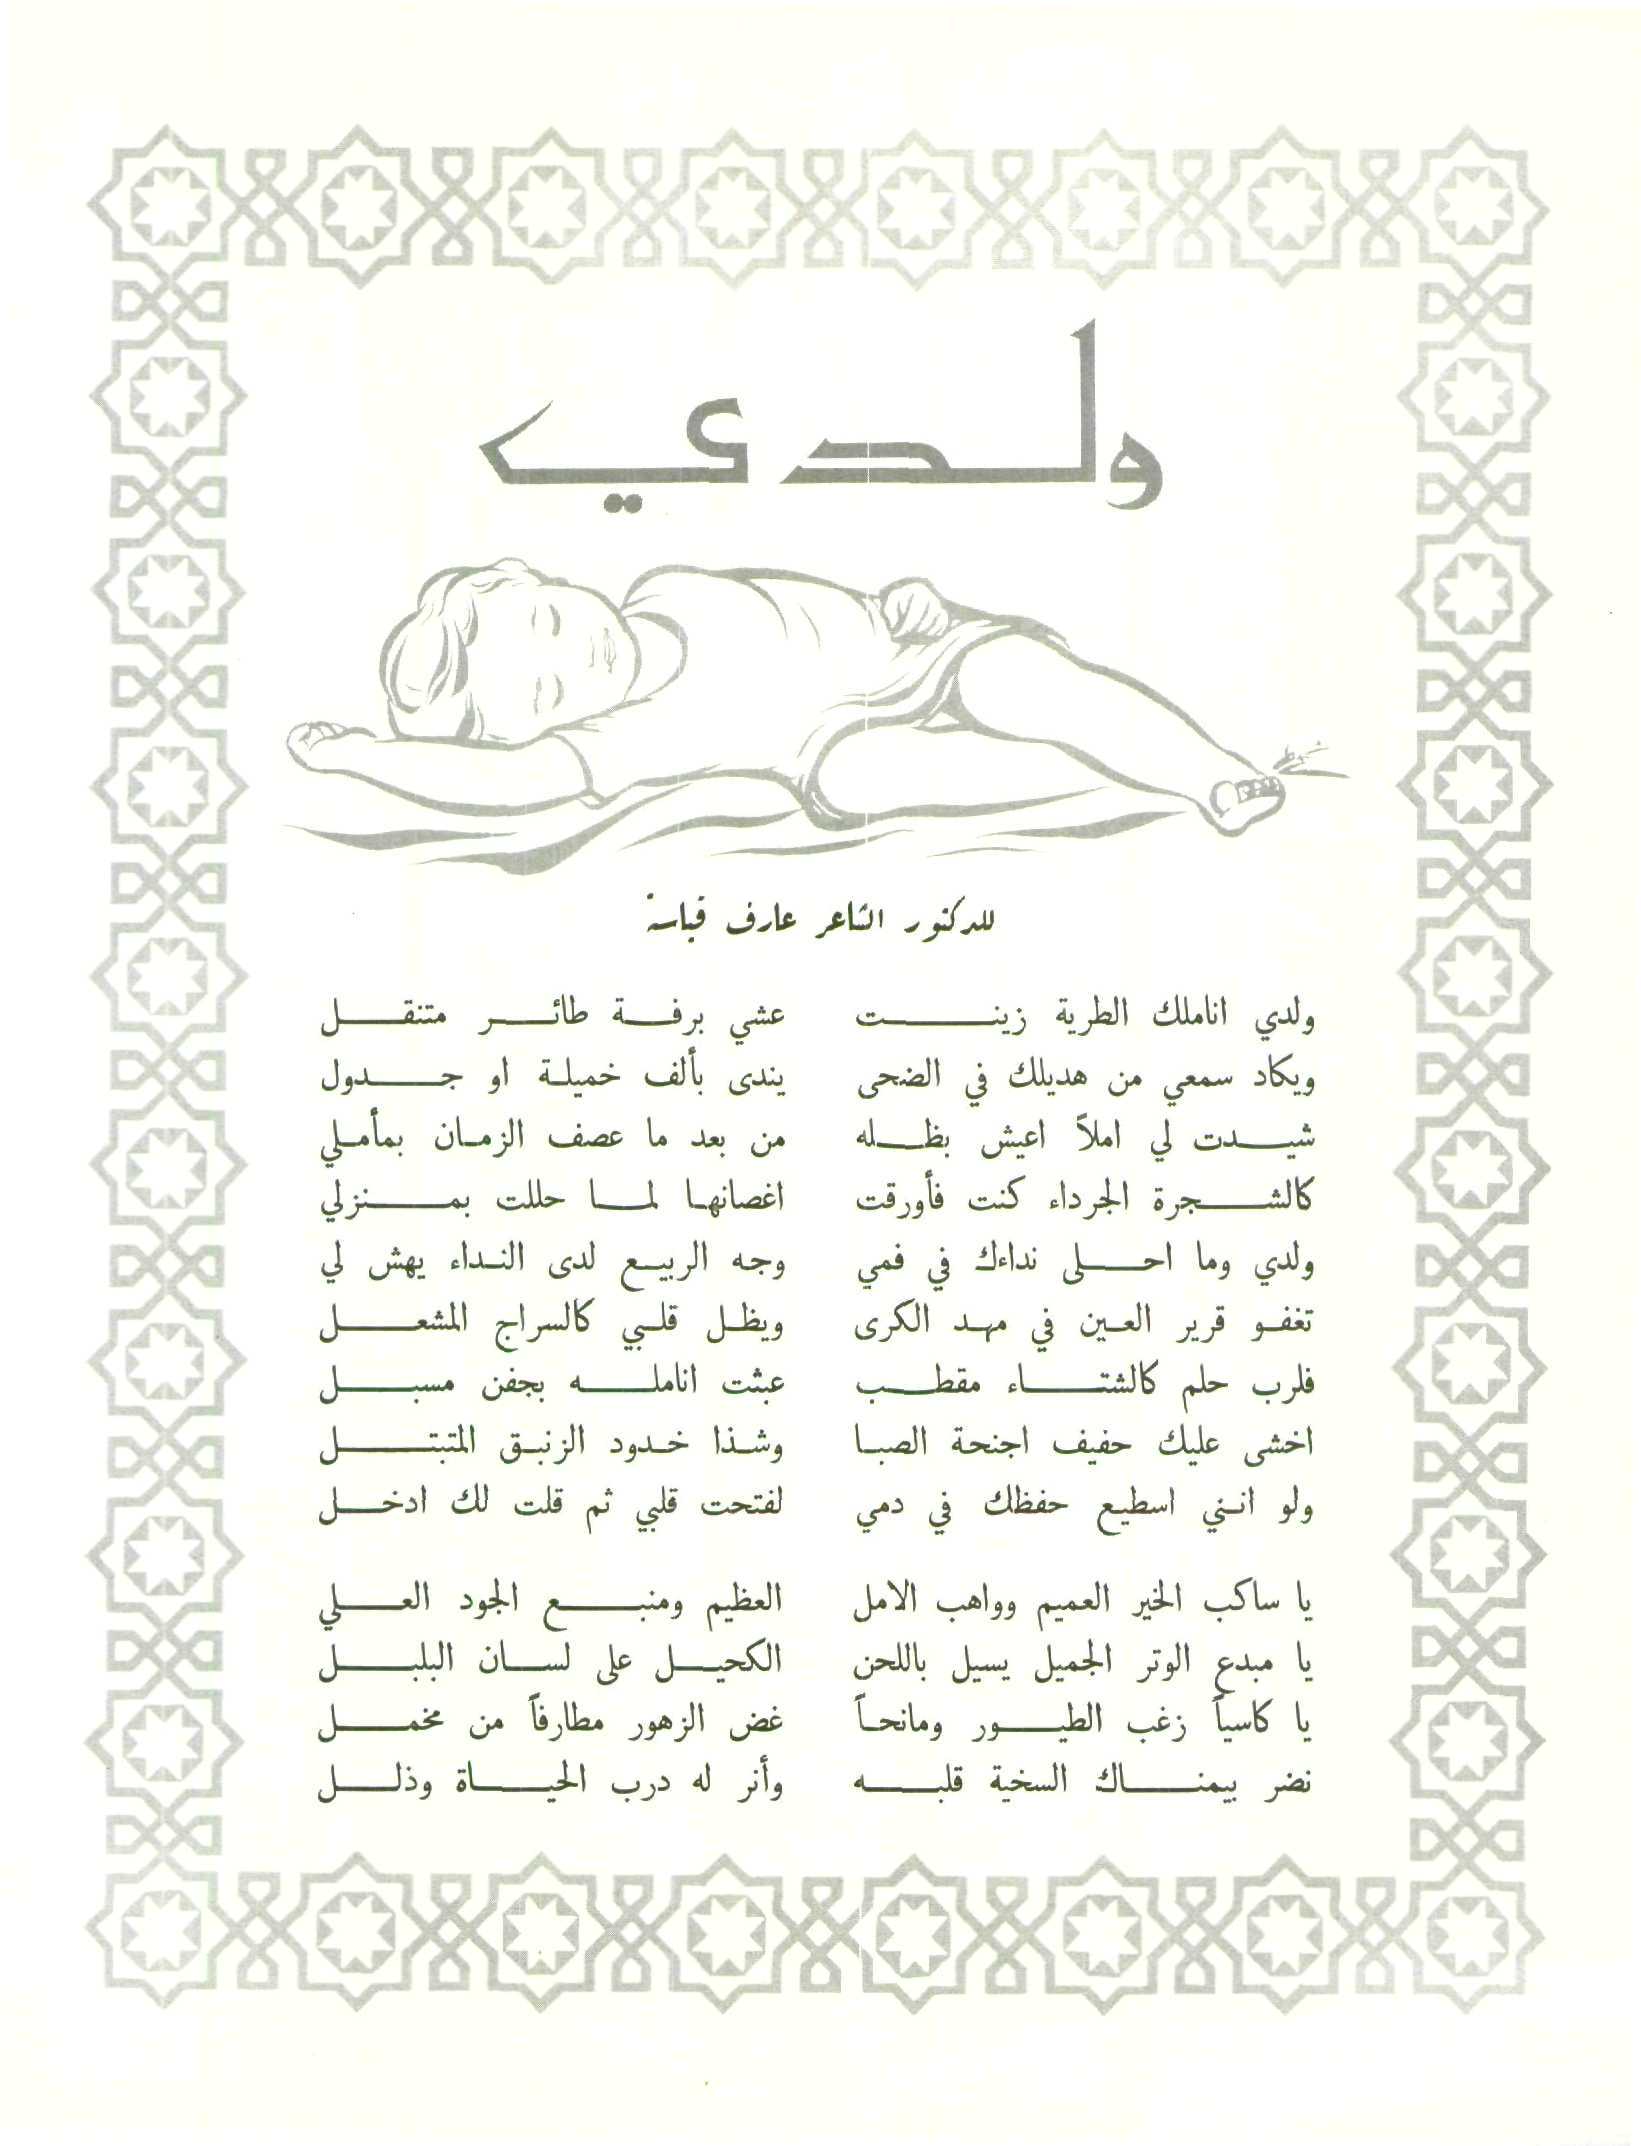 ولدي
للدكتور الشاعر عارف قياسة
ولدي اناملك الطرية زينت عشي برفة طائر متنقل
ويكاد سمعي من هديلك في الضحى يندى بألف خميلة او جدول
شيدت لي املاً اعيش بظله من بعد ما عصف الزمان بمأملي
كالشجرة الجرداء كنت فأورقت اغصانها لما حللت بمنزلي
ولدي وما احلى نداءك في فمي وجه الربيع لدى النداء يهش لي
تغفو قرير العين في مهد الكرى ويظل قلبي كالسراج المشعل
فلرب حلم كالشتاء مقطب عبثت انامله بجفن مسبل
اخشى عليك حفيف اجنحة الصبا وشذا خدود الزنبق المتبتل
ولو انني اسطيع حفظك في دمي لفتحت قلبي ثم قلت لك ادخل
يا ساكب الخير العميم وواهب الامل العظيم ومنبع الجود العلي
يا مبدع الوتر الجميل يسيل باللحن الكحيل على لسان البلبل
يا كاسياً زغب الطيور ومانحاً غض الزهور مطارفاً من مخمل
نضر بيمناك السخية قلبه وأنر له درب الحياة وذلل